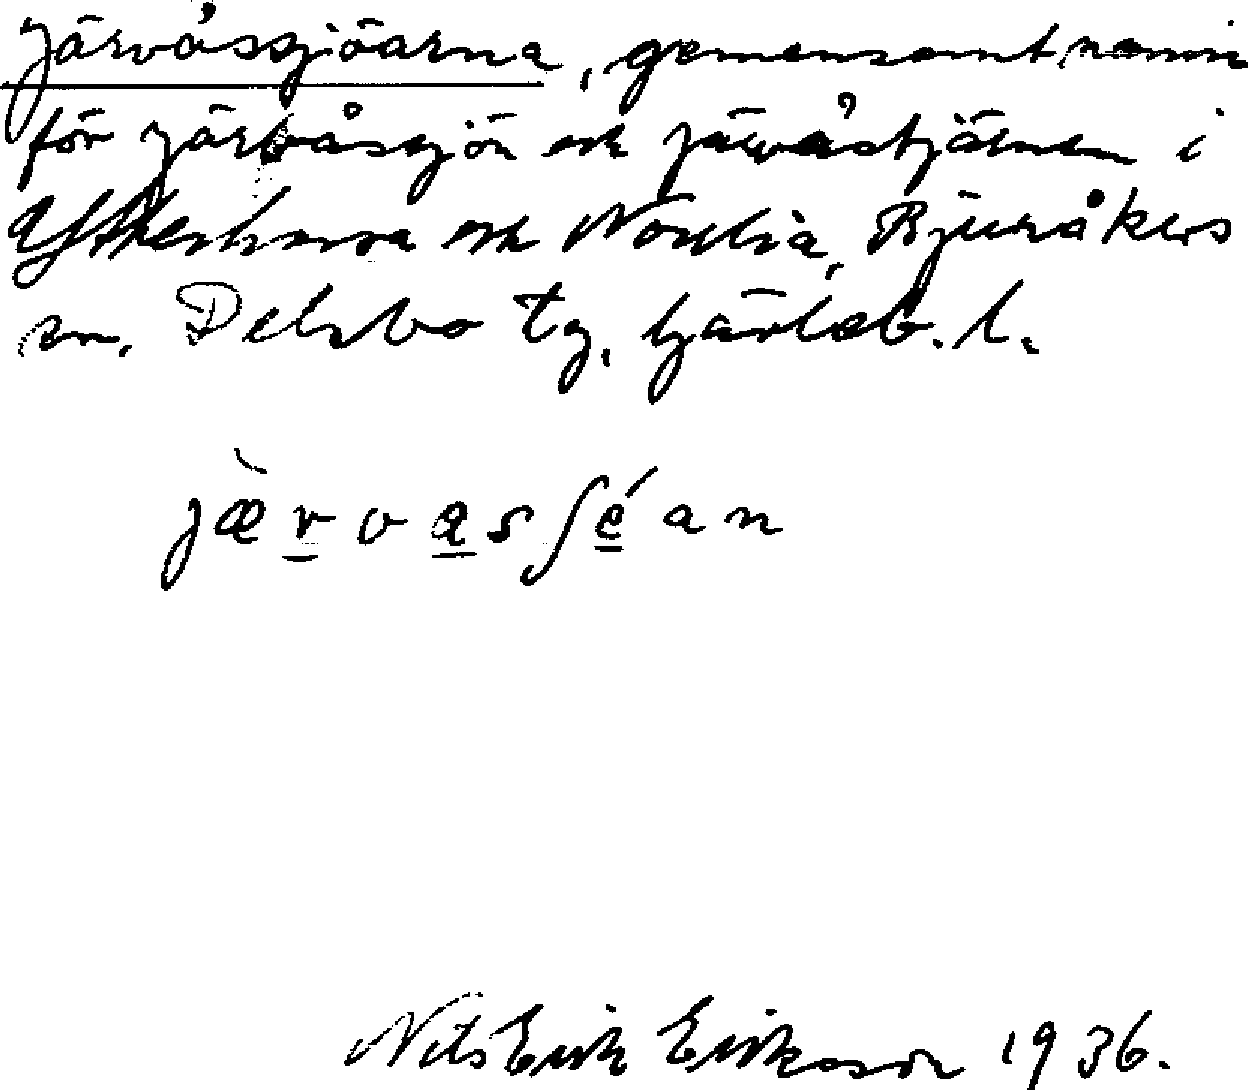 Järvåssjöarna, gemensamt namn
för Järvåssjön och Järvåstjärnen i
Ytterhavra och Norrhavra, Bjuråkers
sn, Delsbo tg, Gävleb. l.
jærvasʃéan
Nils Erik Eriksson 1936.